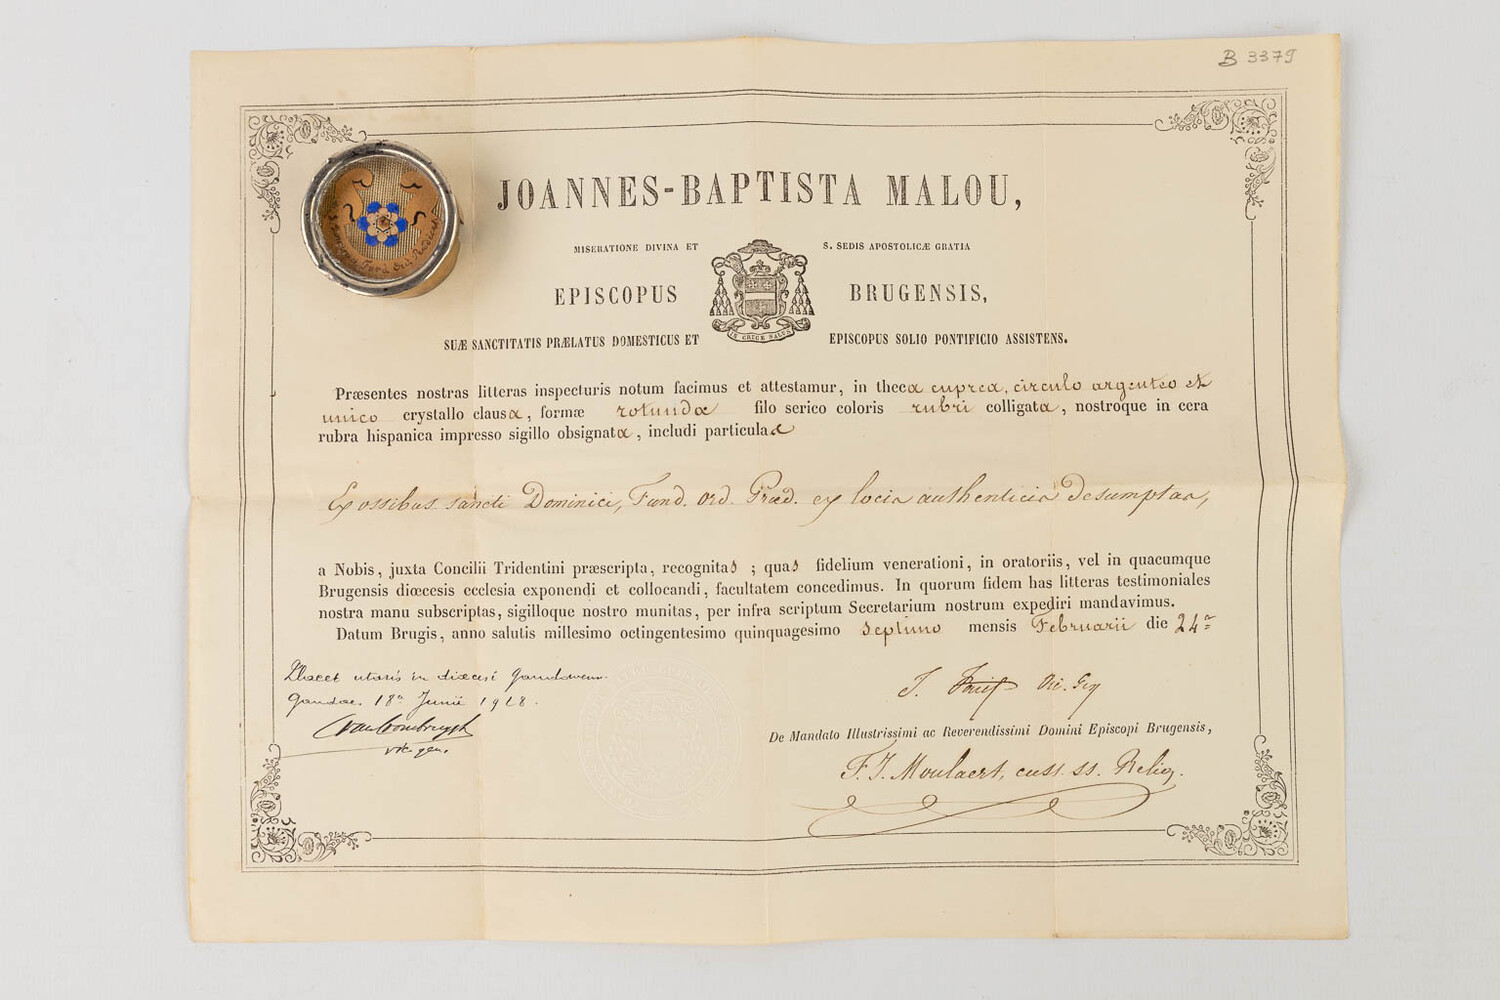 B 3379
JOANNES-BAPTISTA MALOU,
MISERATIONE DIVINA ET S. SEDIS APOSTOLICÆ GRATIA
EPISCOPUS BRUGENSIS,
SUÆ SANCTITATIS PRÆLATUS DOMESTICUS ET EPISCOPUS SOLIO PONTIFICIO ASSISTENS.
Præsentes nostras litteras inspecturis notum facimus et attestamur, in theca cuprea, circulo argenteo et
unico crystallo clausa, formæ rotundæ filo serico coloris rubri colligata, nostroque in cera
rubra hispanica impresso sigillo obsignata, includi particulas
Ex ossibus sancti Dominici, Fund. Ord. Præd. ex locis authenticis desumptas,
a Nobis, juxta Concilii Tridentini præscripta, recognitas ; quas fidelium venerationi, in oratoriis, vel in quacumque
Brugensis diœcesis ecclesia exponendi et collocandi, facultatem concedimus. In quorum fidem has litteras testimoniales
nostra manu subscriptas, sigilloque nostro munitas, per infra scriptum Secretarium nostrum expediri mandavimus.
Datum Brugis, anno salutis millesimo octingentesimo quinquagesimo septimo mensis Februarii die 24ª
in diœcesi
Gandae 18ª Junii 1928.
vic. gen.
De Mandato Illustrissimi ac Reverendissimi Domini Episcopi Brugensis,
F. J. Moulaert, cust. ss. Reliq.